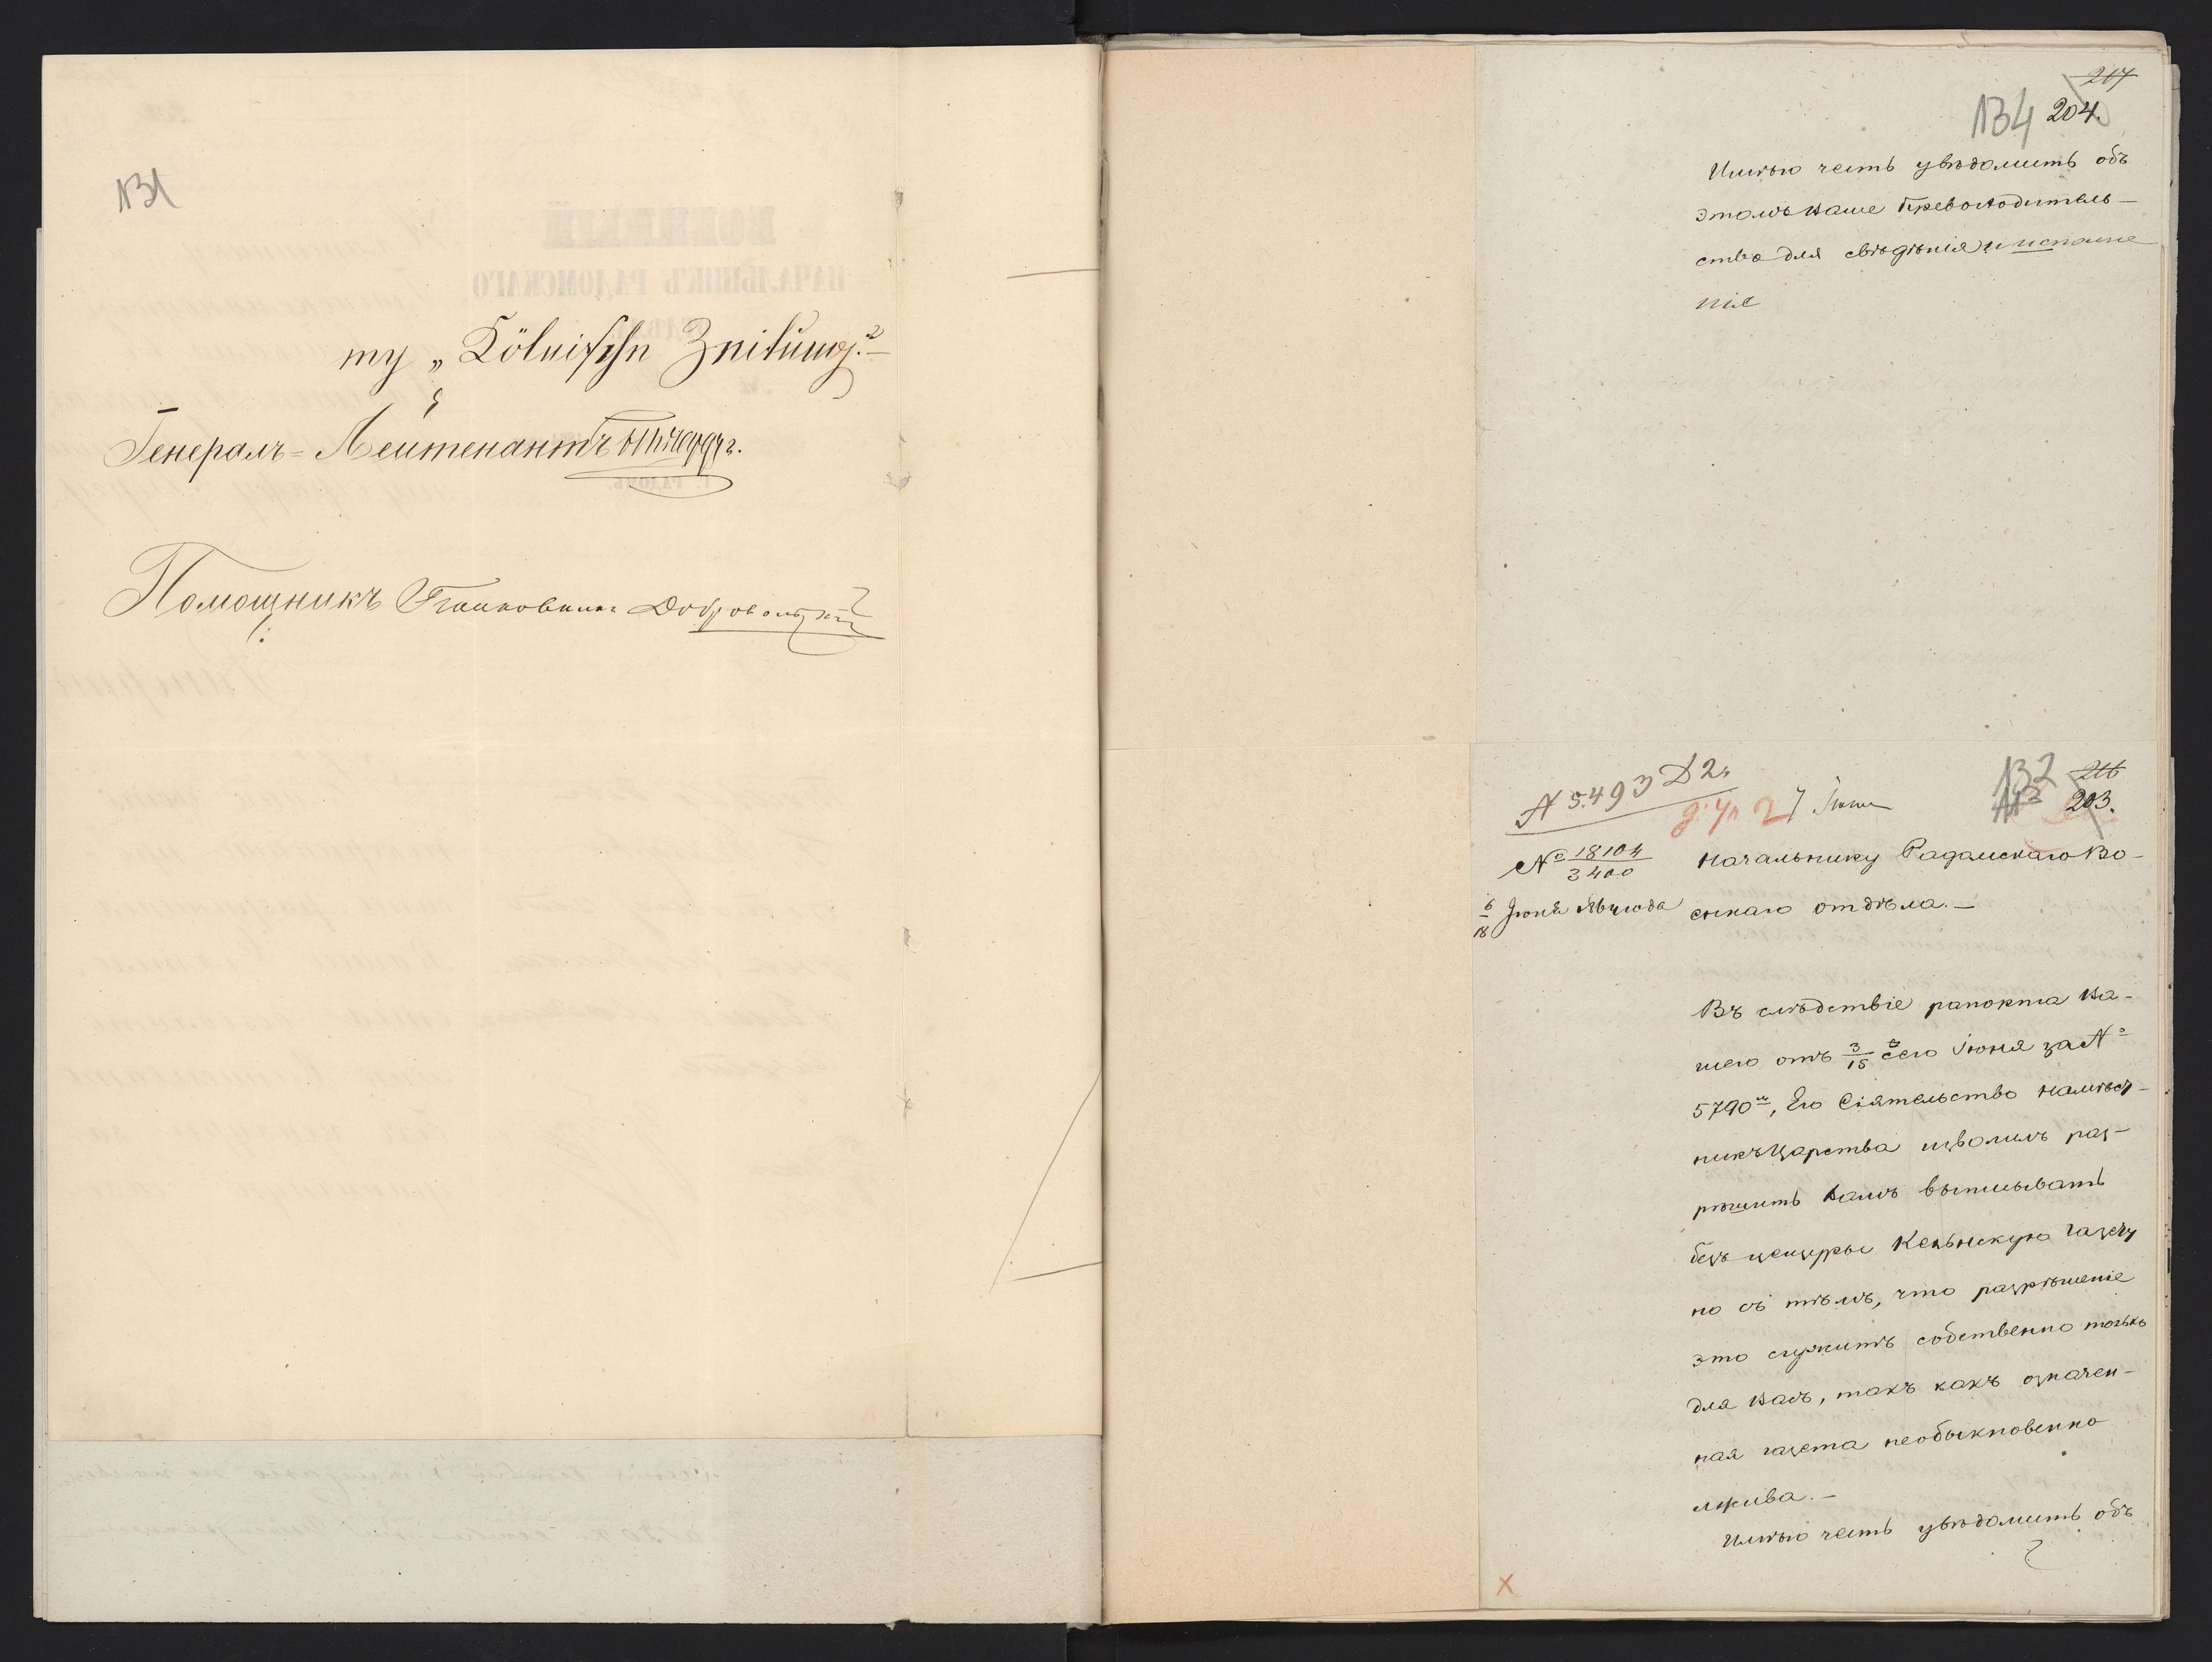 131
ту „Kölnische Zeitung“.
Генералъ-Лейтенантъ
Помощникъ Полковникъ Добровольскій
207
134 204.
Имѣю честь увѣдомить объ
этомъ Ваше Превосходитель-
ство для свѣдѣнія и исполне
нія
№ 5.493 Д 2.
7 Іюня
132 206
203.
№ 18104/3400
6/18 Іюня года
Начальнику Радомскаго Во-
еннаго отдѣла.—
Въ слѣдствіе рапорта Ва-
шего отъ 3/15 сего Іюня за №
5790, Его Сіятельство Намѣст-
никъ Царства изволилъ раз-
рѣшить Вамъ выписывать
безъ цензуры Кельнскую газету
но съ тѣмъ, что разрѣшеніе
это служитъ собственно только
для Васъ, такъ какъ означен-
ная газета необыкновенно
лжива.—
Имѣю честь увѣдомить объ